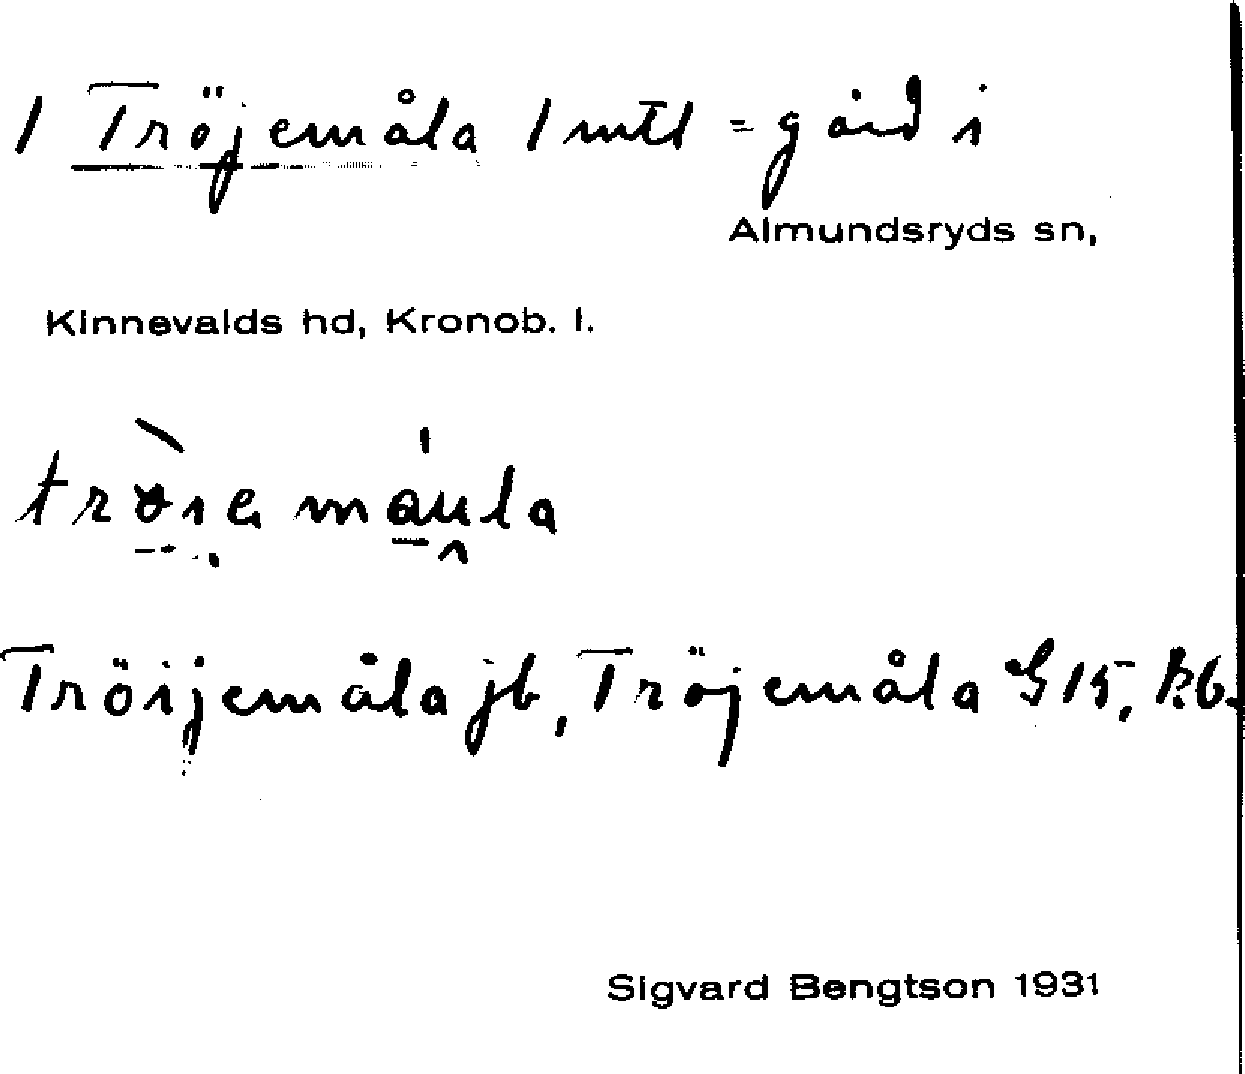 1 Tröjemåla 1 mtl = gård i
Almundsryds sn,
Kinnevalds hd, Kronob. l.
Tröijemåla jb, Tröjemåla G 15, kb.
Sigvard Bengtson 1931